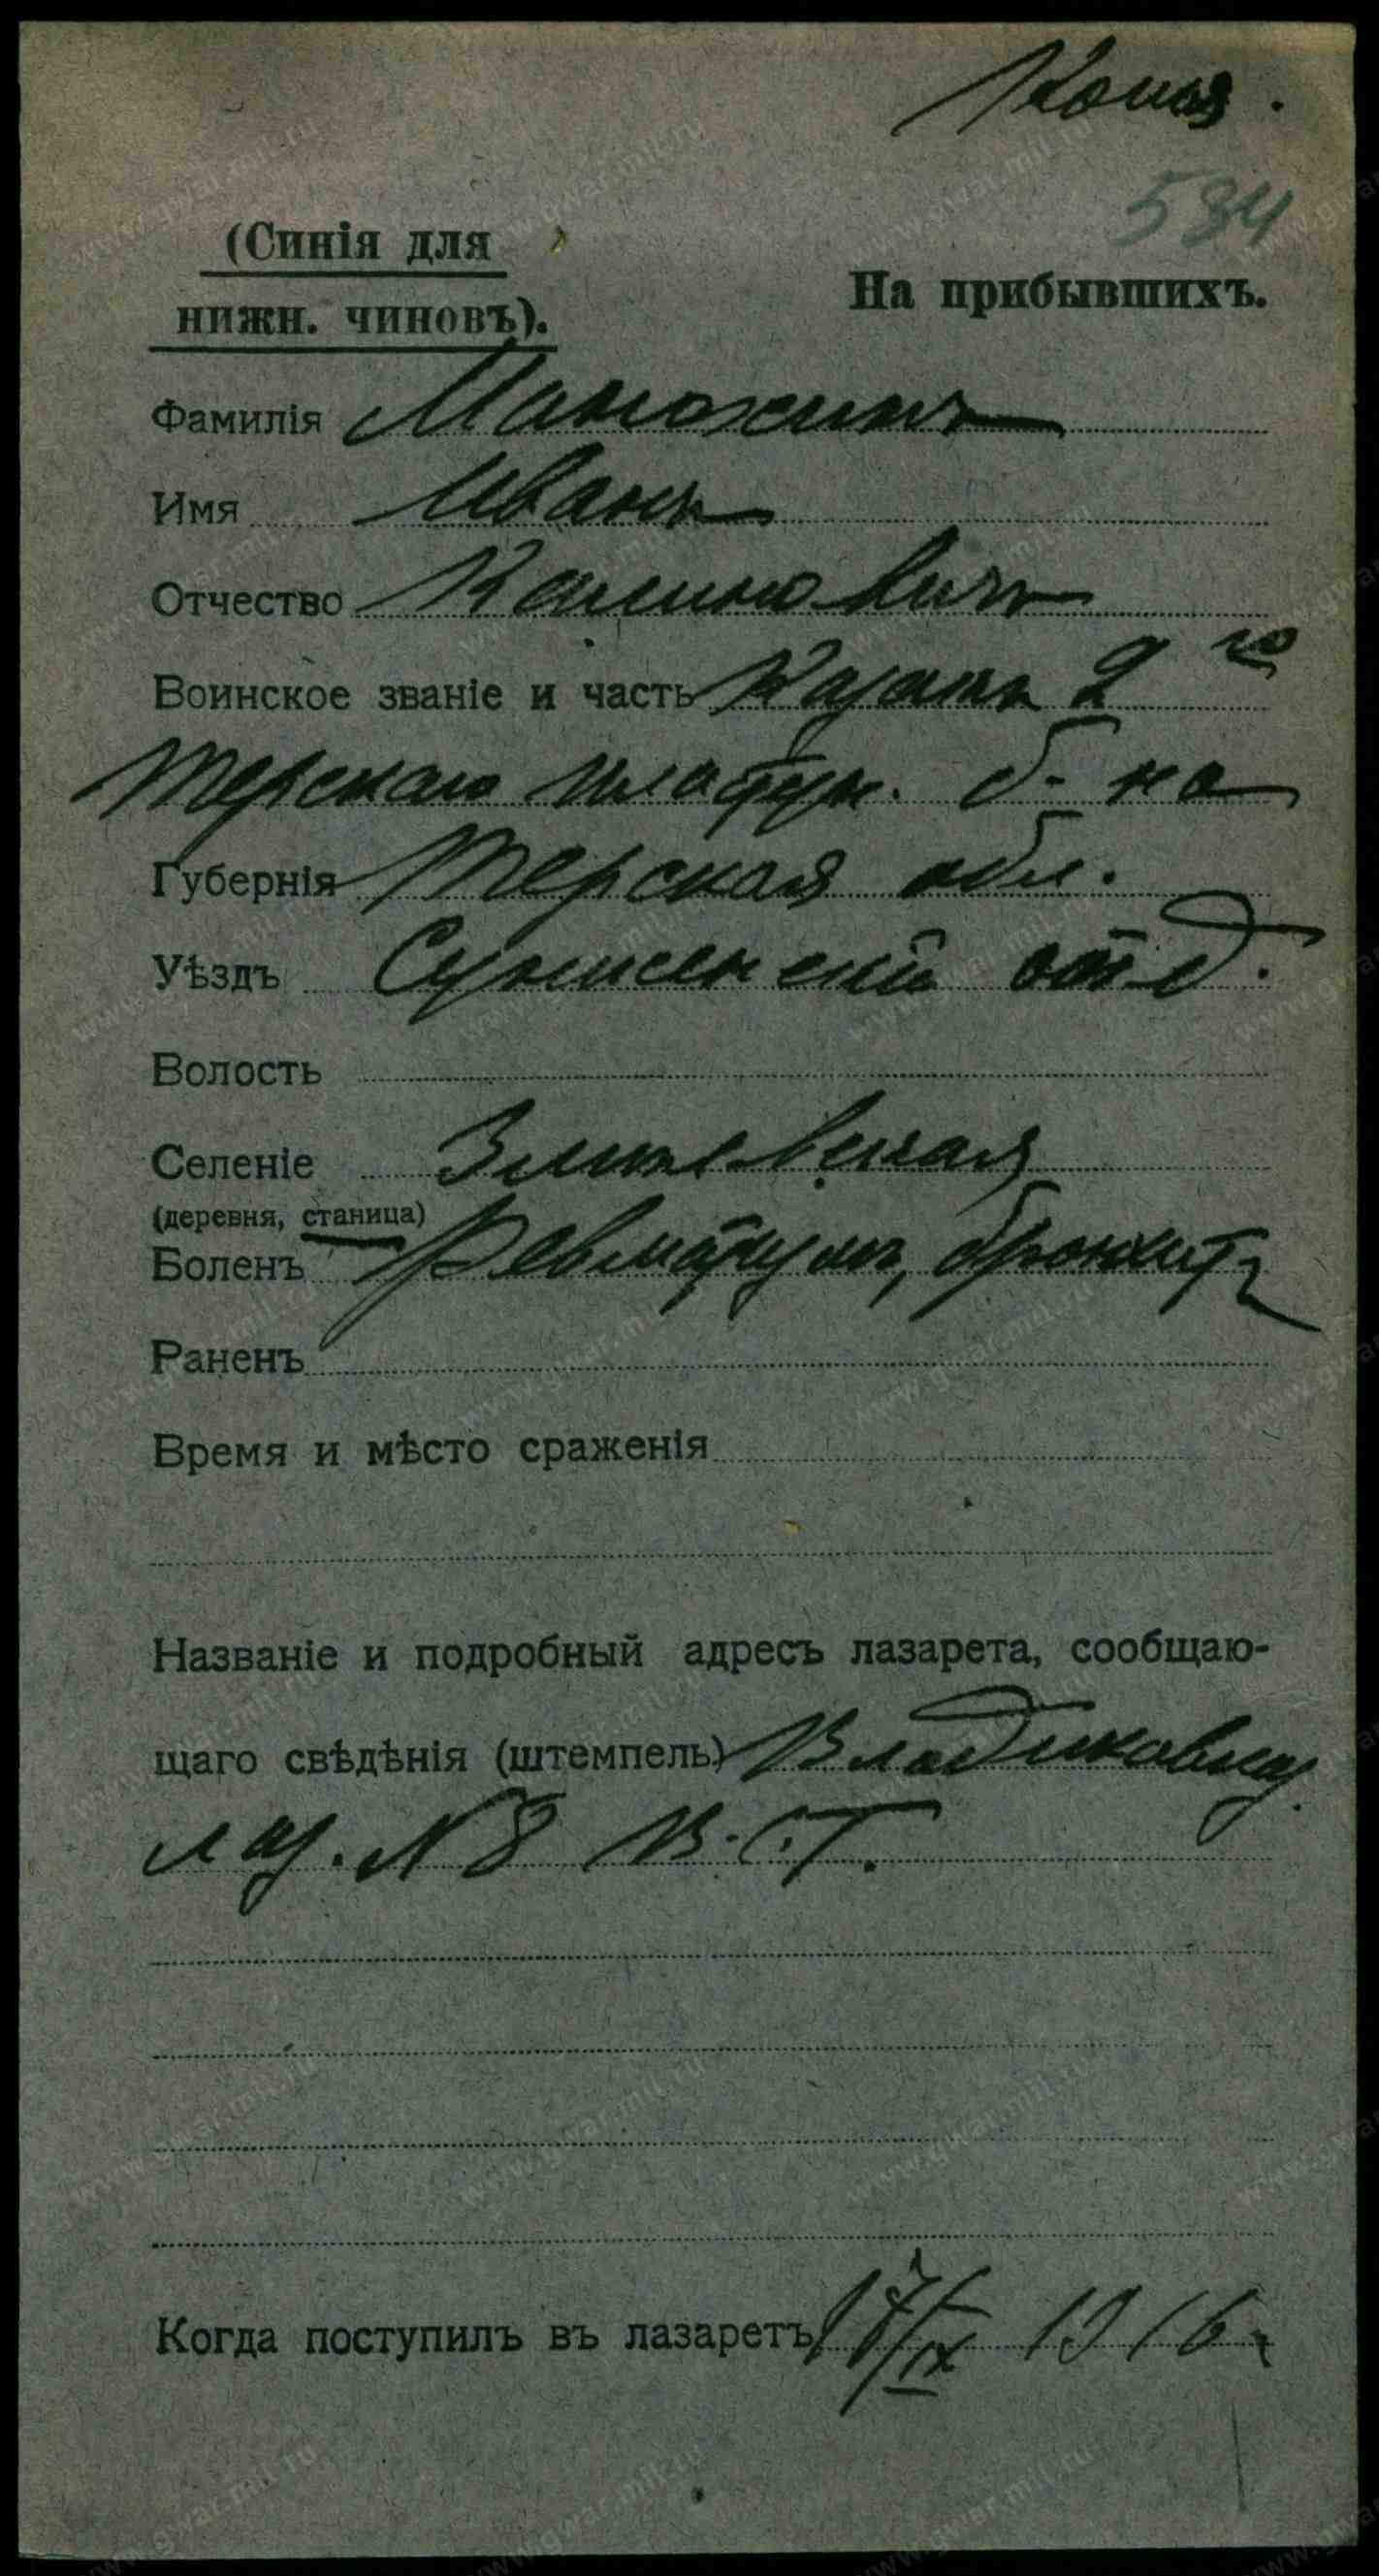 Копія.
534
(Синія для
нижн. чиновъ).
На прибывшихъ.
Фамилія Манохинъ
Имя Иванъ
Отчество Калиновичъ
Воинское званіе и часть Казакъ 2го
Терскаго пластун. б-на
Губернія Терская обл.
Уѣздъ Сунженскій отд.
Волость
Селеніе
(деревня, станица)
Боленъ Ревматизмъ, бронхитъ
Раненъ
Время и мѣсто сраженія
Названіе и подробный адресъ лазарета, сообщаю-
щаго свѣдѣнія (штемпель) Владикавказ.
лаз. N 8 В.С.Г.
Когда поступилъ въ лазаретъ 17/IX 1916
www.gwar.mil.ru